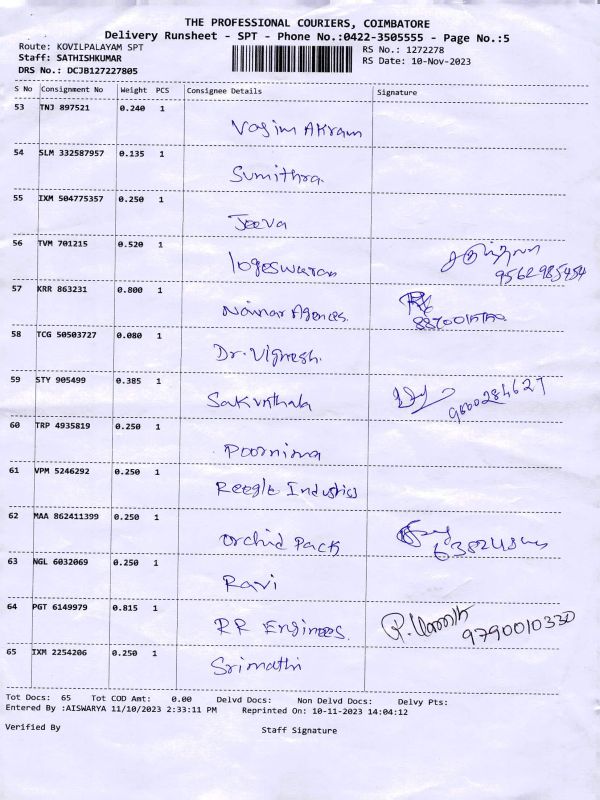 THE PROFESSIONAL COURIERS, COIMBATORE
Delivery Runsheet - SPT - Phone No.:0422-3505555 - Page No.:5
Route: KOVILPALAYAM SPT RS No.: 1272278
Staff: SATHISHKUMAR RS Date: 10-Nov-2023
DRS No.: DCJB127227805
S No Consignment No Weight PCS Consignee Details Signature
53 TNJ 897521 0.240 1
Vasim Akram
54 SLM 332587957 0.135 1
Sumithra
55 IXM 504775357 0.250 1
Jeeva
56 TVM 701215 0.520 1
logeswaran
9562985454
57 KRR 863231 0.800 1
Nainar Agences.
58 TCG 50503727 0.080 1
Dr. Vignesh.
59 STY 905499 0.385 1
Sakunthala 9600284627
60 TRP 4935819 0.250 1
Poornima
61 VPM 5246292 0.250 1
Reegle Industries
62 MAA 862411399 0.250 1
Orchid Pack
63 NGL 6032069 0.250 1
Ravi
64 PGT 6149979 0.815 1
RR Engineers. 9790010330
65 IXM 2254206 0.250 1
Srimathi
Tot Docs: 65 Tot COD Amt: 0.00 Delvd Docs: Non Delvd Docs: Delvy Pts:
Entered By :AISWARYA 11/10/2023 2:33:11 PM Reprinted On: 10-11-2023 14:04:12
Verified By Staff Signature